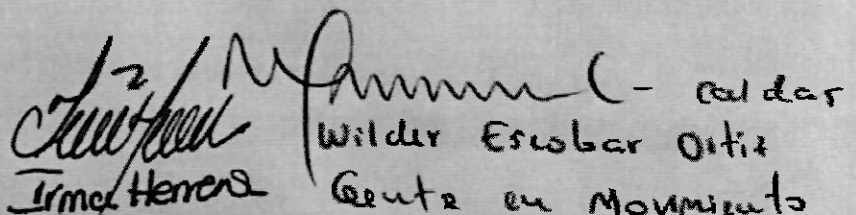 - Caldas
Wilder Escobar Ortiz
Irma Herrera Gente en Movimiento